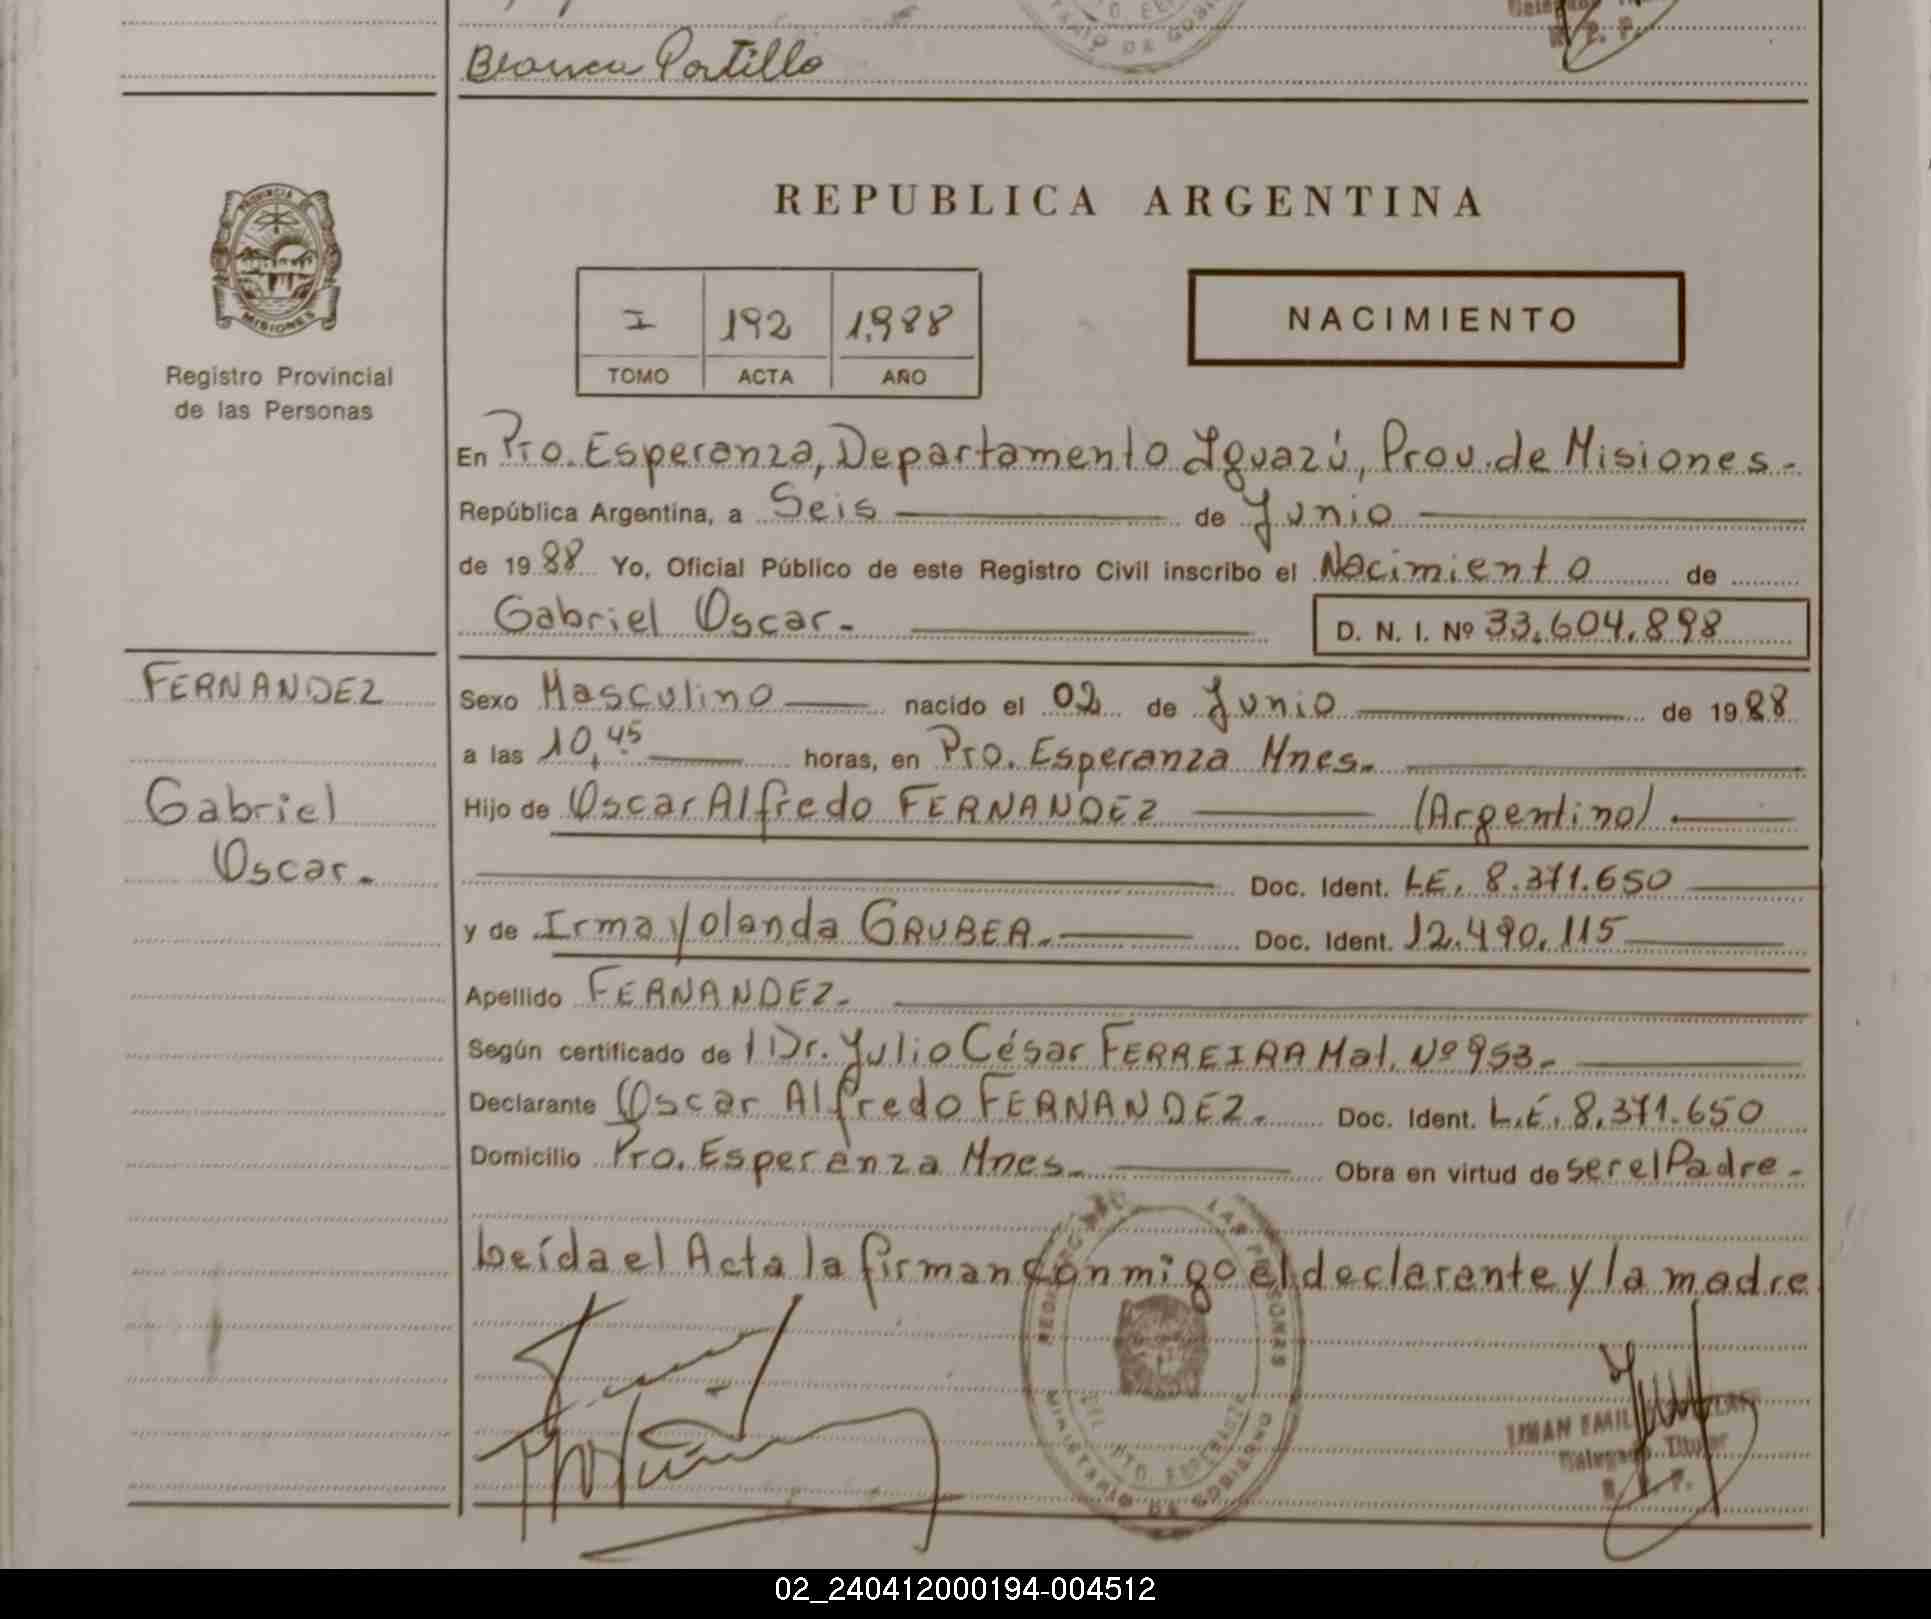 Blanca Portillo
PROVINCIA
MISIONES
Registro Provincial
de las Personas
REPUBLICA ARGENTINA
I 192 1.988
TOMO ACTA AÑO
NACIMIENTO
En Pto. Esperanza, Departamento Iguazú, Prov. de Misiones.-
República Argentina, a Seis de Junio
de 1988 Yo, Oficial Público de este Registro Civil inscribo el Nacimiento de
Gabriel Oscar.-
D. N. I. Nº 33.604.898
FERNANDEZ
Gabriel
Oscar.-
Sexo Masculino nacido el 02 de Junio de 1988
a las 10,45 horas, en Pto. Esperanza Mnes.-
Hijo de Oscar Alfredo FERNANDEZ (Argentino).
Doc. Ident. L.E. 8.371.650
y de Irma Yolanda GRUBER.- Doc. Ident. 12.490.115
Apellido FERNANDEZ.-
Según certificado de l Dr. Julio César FERREIRA Mat. Nº 953.-
Declarante Oscar Alfredo FERNANDEZ.- Doc. Ident. L.E. 8.371.650
Domicilio Pto. Esperanza Mnes.- Obra en virtud de ser el Padre.-
Leída el Acta la firman conmigo el declarante y la madre
LAS PERSONAS
MINISTERIO DE GOBIERNO
PTO. ESPERANZA
Delegado Titular
R. P. P.
02_240412000194-004512